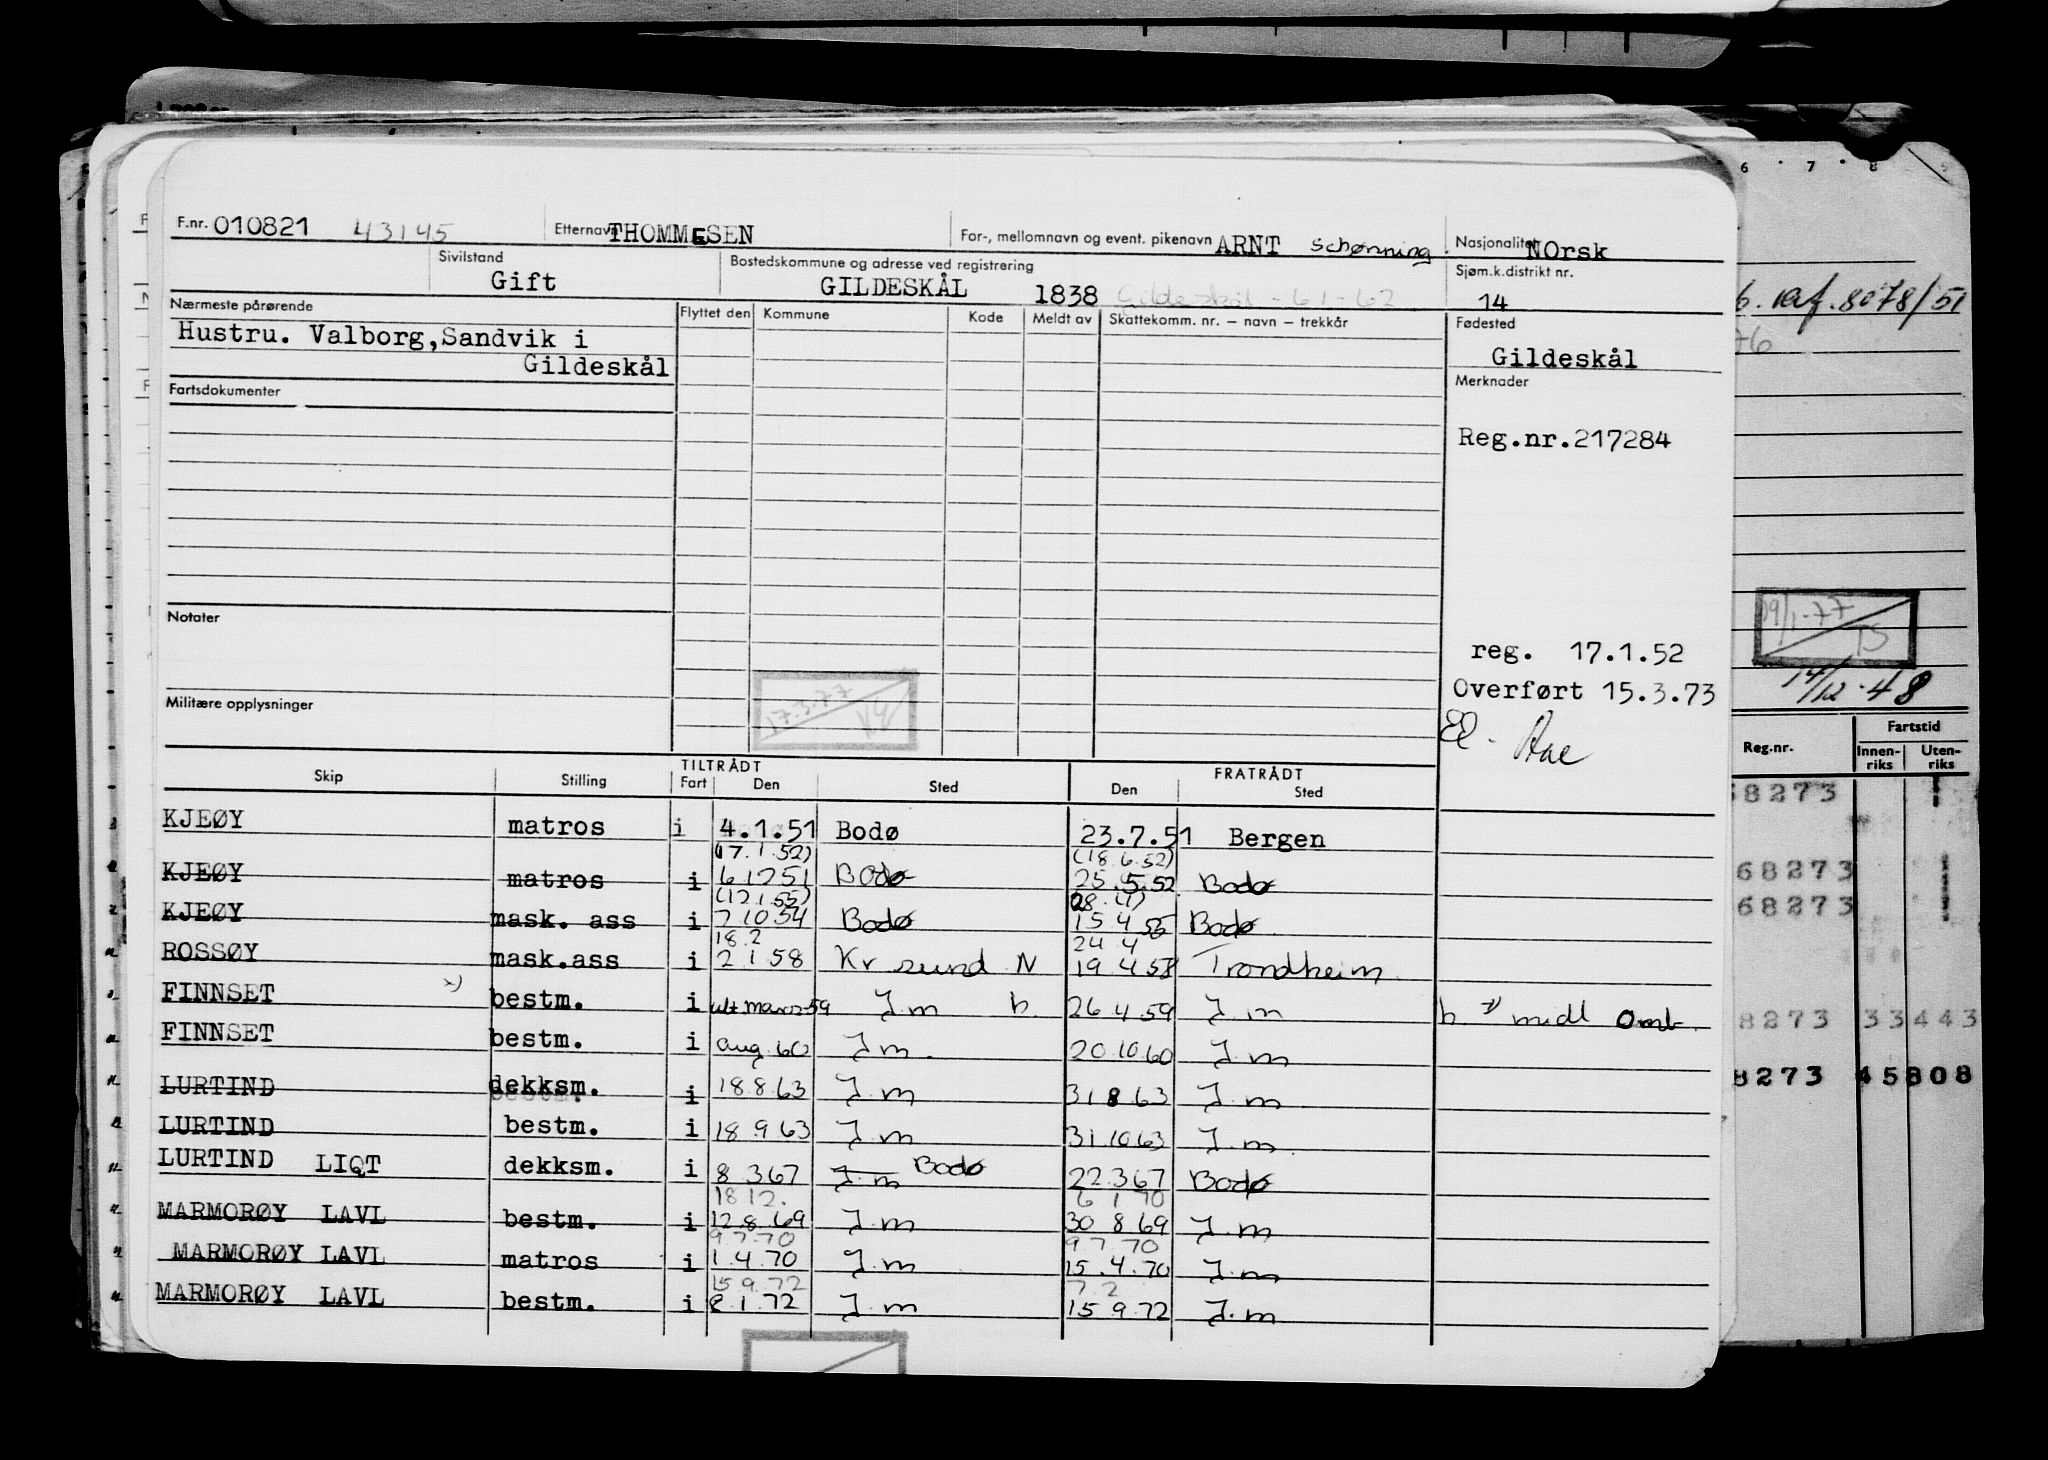 F.nr. 010821 43145 Etternavn THOMMESEN For-, mellomnavn og event. pikenavn ARNT Schønning Nasjonalitet NOrsk
Sivilstand Gift Bostedskommune og adresse ved registrering GILDESKÅL 1838 Gildeskål - 61-62 Sjøm.k.distrikt nr. 14
Nærmeste pårørende Flyttet den Kommune Kode Meldt av Skattekomm. nr. – navn – trekkår Fødested
Hustru. Valborg,Sandvik i
Gildeskål Gildeskål
Fartsdokumenter Merknader
Reg.nr.217284
Notater
reg. 17.1.52
Overført 15.3.73
Militære opplysninger
17.3.77
TILTRÅDT FRATRÅDT
Skip Stilling Fart Den Sted Den Sted
KJEØY matros i 4.1.51 Bodø 23.7.51 Bergen
(17.1.52) (18.6.52)
KJEØY matros i 6.12 51 Bodø 25.5.52 Bodø
(12.1.55)
KJEØY mask. ass i 7 10 54 Bodø 15 4 55 Bodø
18.2 24 4
ROSSØY mask.ass i 2 1 58 Kr sund N 19 4 58 Trondheim
FINNSET x) bestm. i ult mars 59 J m h 26 4 59 J m h x) midl omb.
FINNSET bestm. i aug 60 J m. 20 10 60 J. m
LURTIND dekksm. i 18 8 63 J. m 31 8 63 J. m
LURTIND bestm. i 18 9 63 J. m 31 10 63 J. m
LURTIND LIQT dekksm. i 8 3 67 J m Bodø 22.3 67 Bodø
18 12. 6 1 70
MARMORØY LAVL bestm. i 12.8.69 J. m 30 8 69 J. m
9.7.70 9 7 70
MARMORØY LAVL matros i 1.4.70 J. m 15.4.70 J. m
15 9.72 7.2
MARMORØY LAVL bestm. i 8.1.72 J. m 15 9.72 J. m
6 7 8
8078/51
76
14/12-48
Reg.nr. Fartstid
Innen-riks Uten-riks
8273
68273
68273
8273 33443
8273 45808